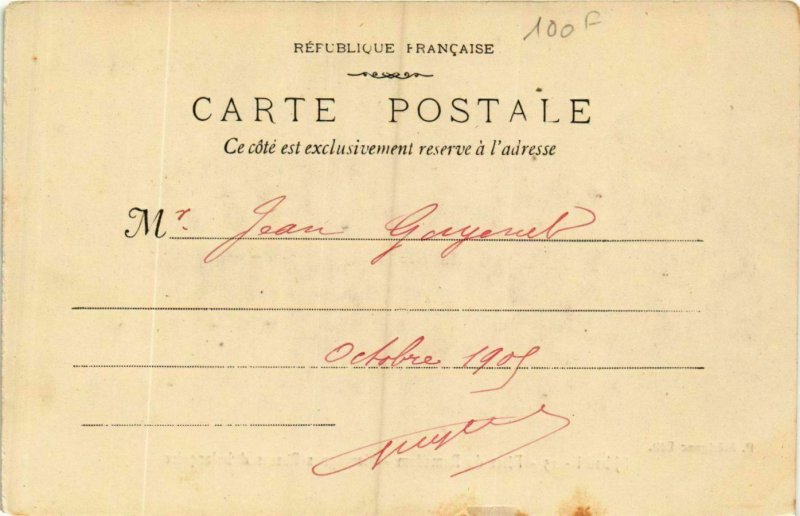 100 F
RÉPUBLIQUE FRANÇAISE
CARTE POSTALE
Ce côté est exclusivement reserve à l'adresse
Mr. Jean
Octobre 1905